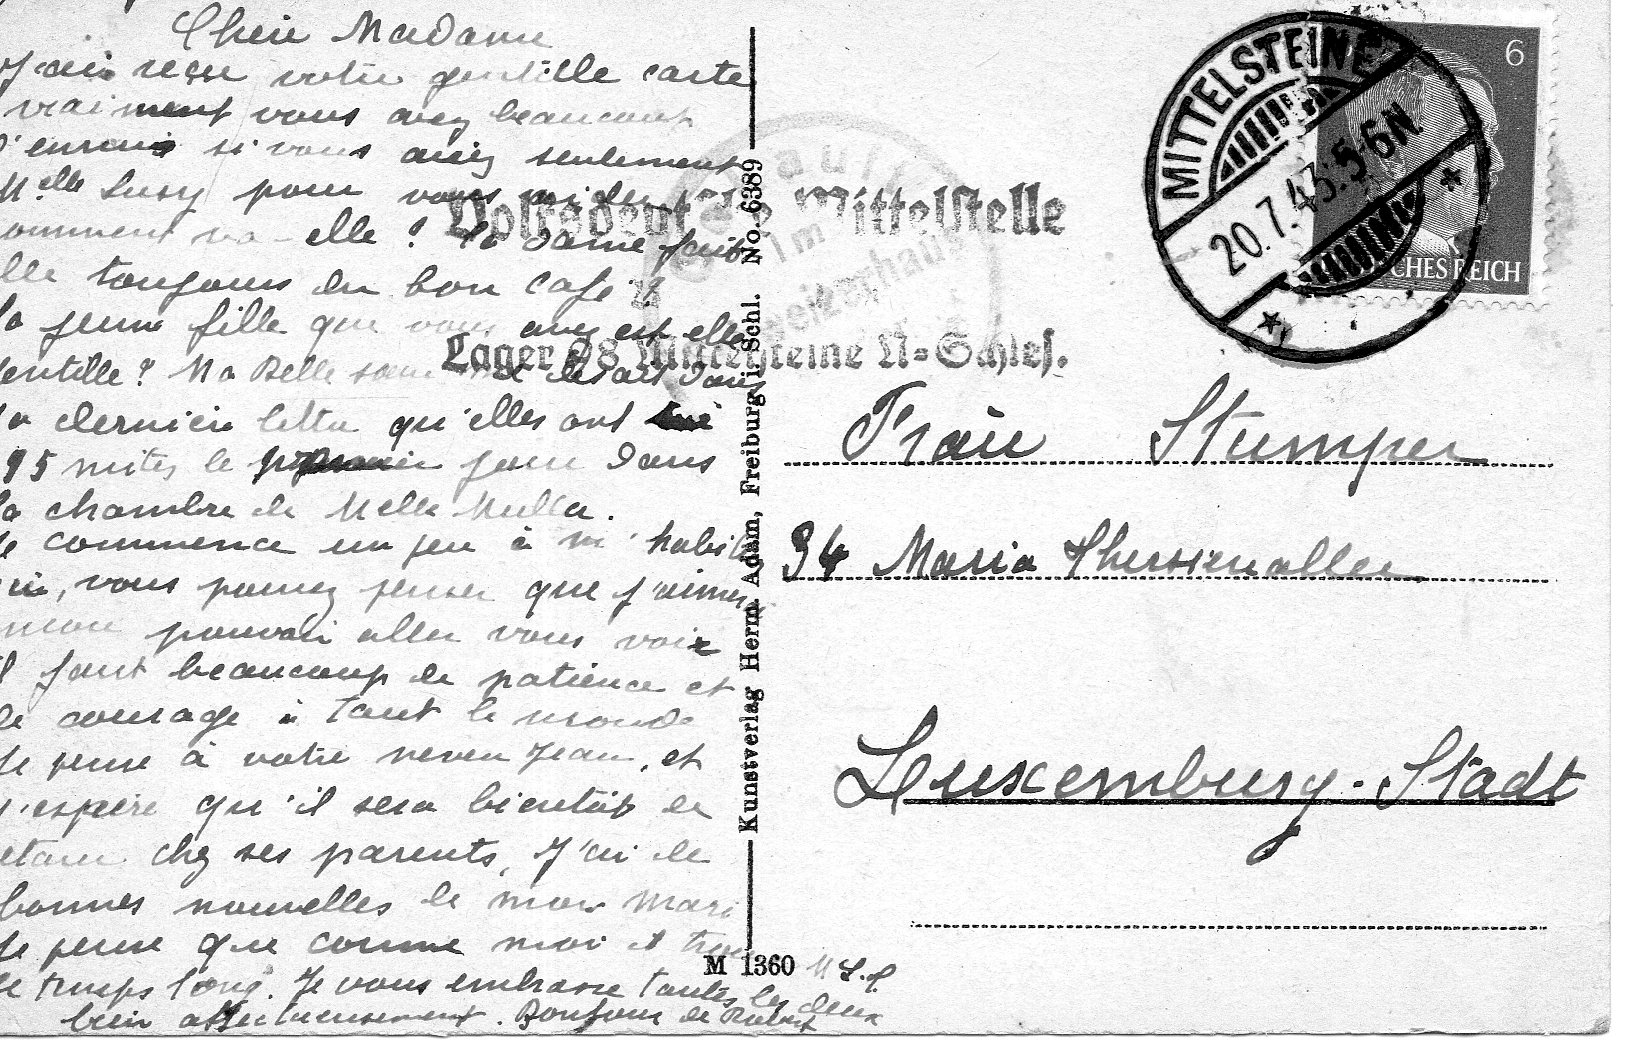 Chère Madame
J'ai reçu votre gentille carte
vraiment vous avez beaucoup
d'ennuis si vous aviez seulement
Melle Lucy pour vous aider
comment va-elle? la dame fait
elle toujours du bon café?
la jeune fille que vous avez est elle
gentille? Ma Belle sœur me disait dans
sa dernière lettre qu'elles ont
95 mites le jour dans
la chambre de Melle Muller.
Je commence un peu à m'habi
ici, vous pouvez penser que j'aimer
pouvoir aller vous voir
il faut beaucoup de patience et
de courage à tout le monde
Je pense à votre neveu Jean, et
j'espère qu'il sera bientôt de
retour chez ses parents, J'ai de
bonnes nouvelles de mon Mari
Je pense que comme moi il trouve
le temps long. Je vous embrasse toutes les deux
bien affectueusement. Bonjour de Robert
M L.P.
Kunstverlag Herm. Adam, Freiburg i. Schl. No. 6389
M 1360
Volksdeutsche Mittelstelle
Lager 98 Mittelsteine N=Schles.
MITTELSTEINE
20.7.43. 5-6N
6
DEUTSCHES REICH
Fraù Stumper
34 Maria Theresienallee
Luxemburg-Stadt